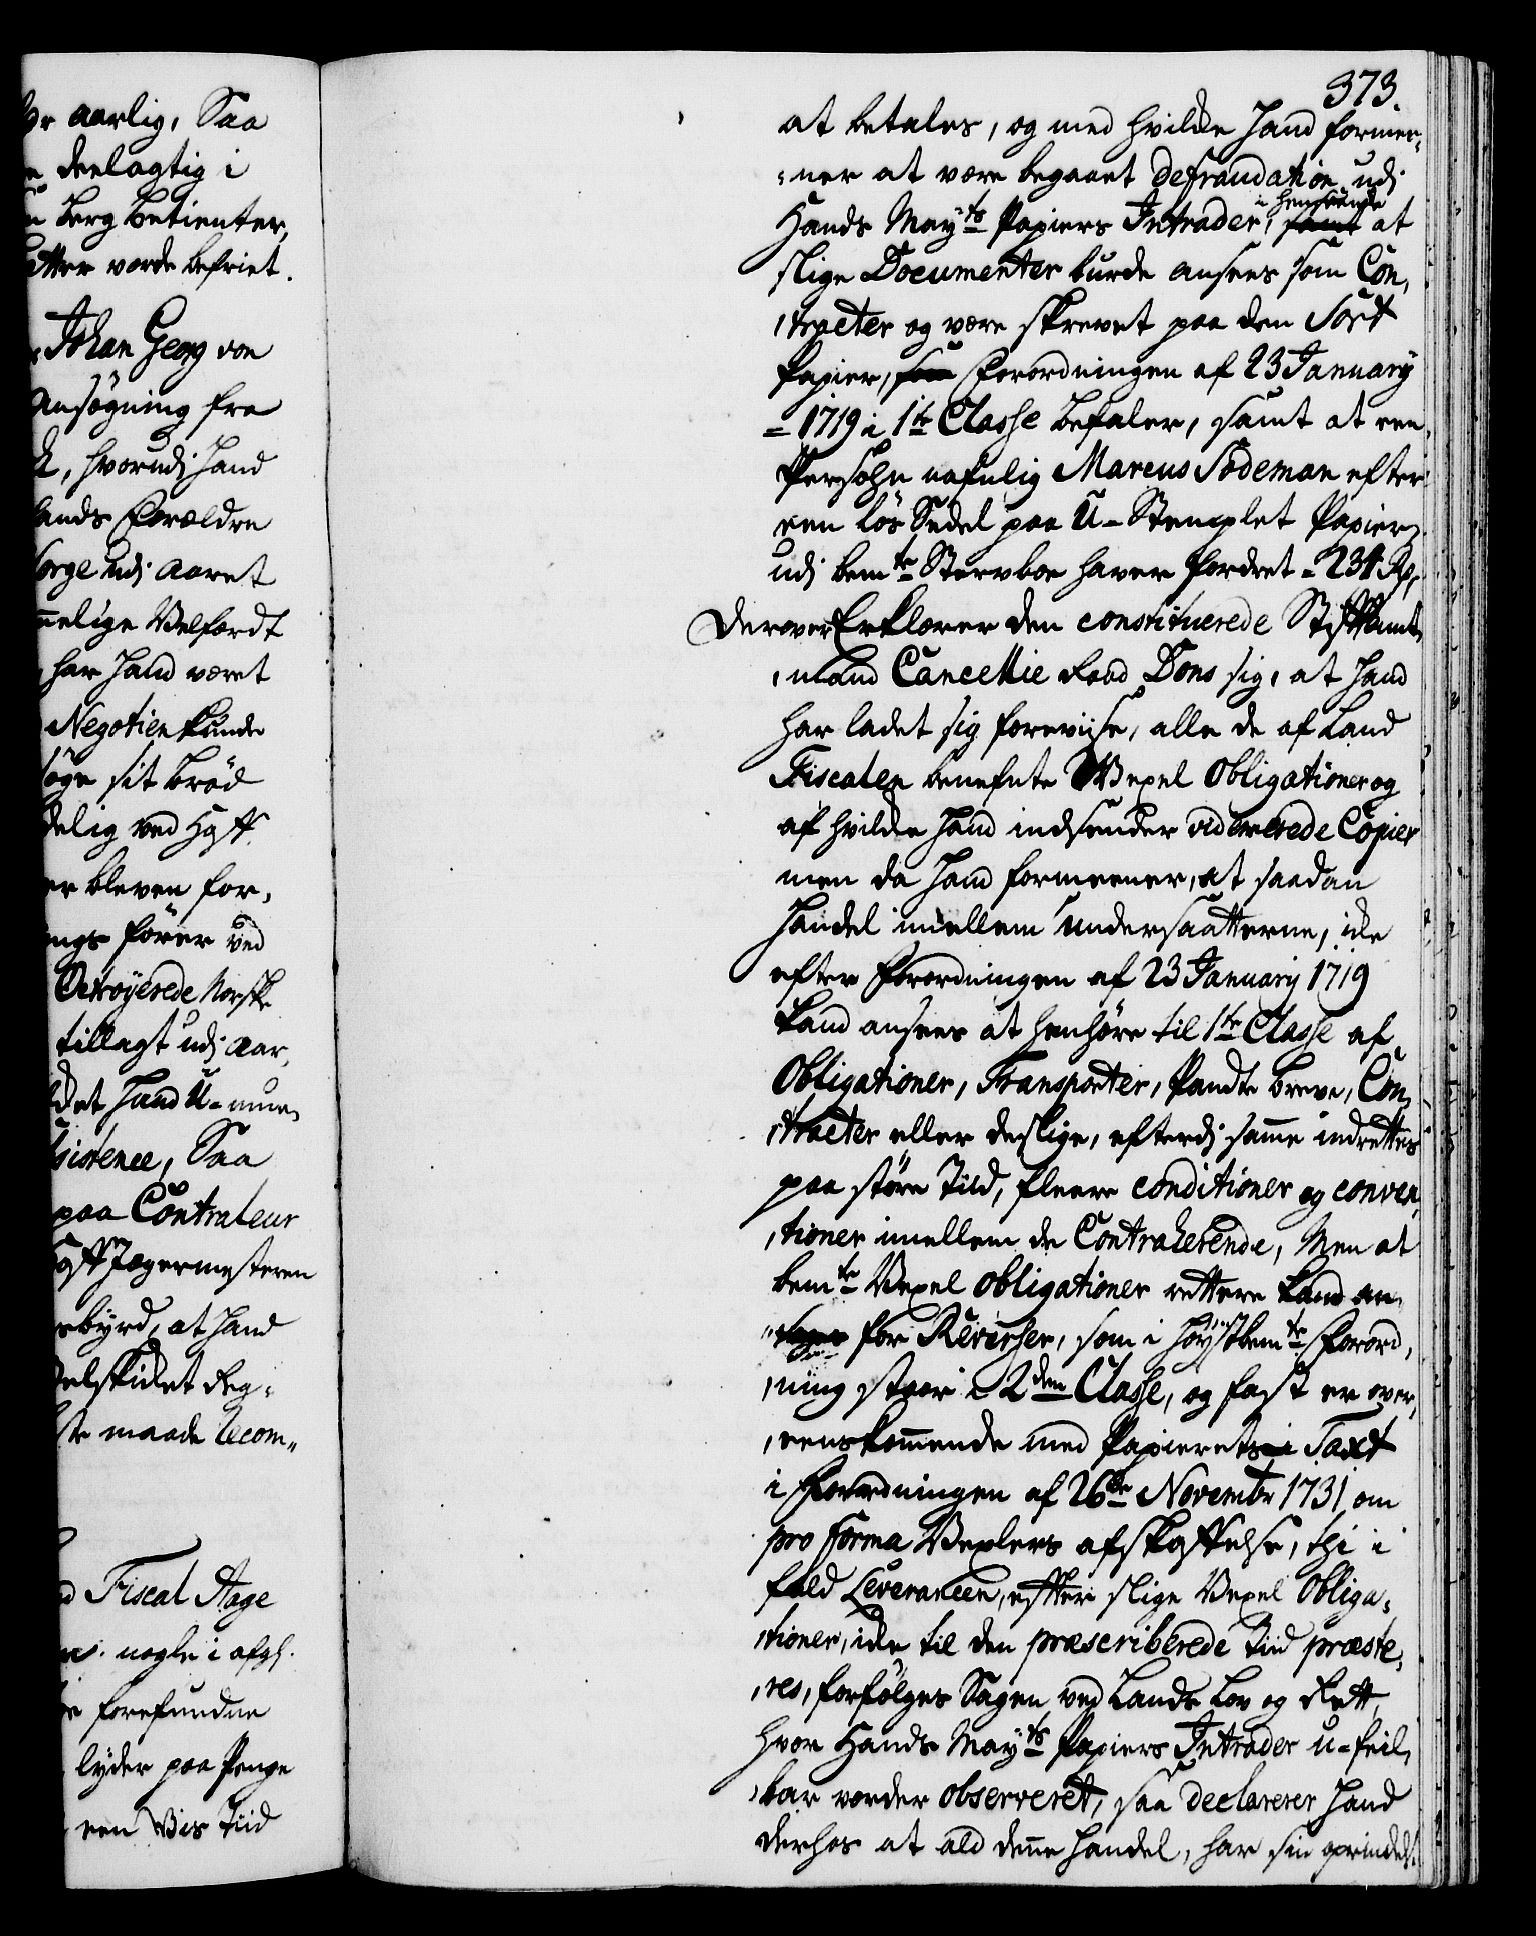 br aarlig, Saa
deelagtig i
Berg Betienter,
atter vorde befriet.
Johan Georg von
Ansøgning fra
k, hvorudj Hand
hands Forældre
orge udj Aaret
melige Velfærdt
har Hand været
Negotien kunde
søge sit brød
delig ved Høst
er bleven for,
ings fører ved
Octroyerede Norske
tillagt udj Aar,
det Hand U-mue,
sistence, Saa
paa Contraleur
Jægermesteren
byrd, at Hand
elskidet Reg-
ste maade recom„
Fiscal Aage
nogle i afgl.
forefundne
lyder paa Penge
een Vis Tiid
373.
at betales, og med hvilke Hand formee,
,ner at være begaaet defraudation udj
i henseende
Hands Mayts Papiers Intrader, samt at
slige Documenter burde ansees som Con,
,tracter og være skrevet paa den Sort
Papier, som Forordningen af 23 January
-1719 i 1te Classe befaler, samt at een
Persohn nafnlig Marcus Södeman efter
een løs Sedel paa U-Stemplet Papier
udj bemte Stervboe haver fordret - 234 Rd,
Derover Erklærer den constituerede Stiftamt,
,mand Cancellie Raad Dons sig, at Hand
har ladet sig foreviise, alle de af Land
Fiscalen benefnte Vexel Obligationer og
af hvilke Hand indsender vidimerede Copier
men da Hand formeener, at saadan
Handel imellem Undersaatterne, icke
efter Forordningen af 23 January 1719
kand ansees at henhøre til 1te Classe af
Obligationer, Transporter, Pandte breve, Con,
,tracter eller deslige, efterdj samme indrettes
paa større Tiid, fleere conditioner og conven,
,tioner imellem de Contraherende, Men at
bemte Vexel Obligationer rettere kand an,
,tages for Reverser, som i høystbemte Forord,
,ning staar i 2den Classe, og fast er over,
,eenskommende med Papierets Taxt
i Forordningen af 26de Novembr 1731 om
pro forma Vexlers afskaffelse, thi i
fald Leverancen, efter slige Vexel Obliga,
,tioner, icke til den præscriberede Tiid præste,
,res, forfølges Sagen ved Lands Lov og Rett,
hvor Hands Mayts Papiers Intrader u-feil,
,bar vorder observeret, saa declarerer Hand
derhos at ald denne Handel, har sin oprindel,